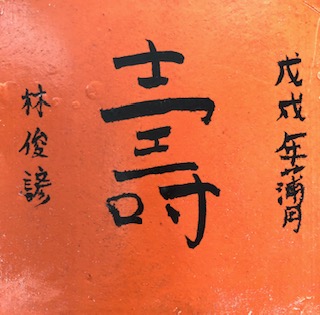 戊戌年蒲月
壽
林俊諺